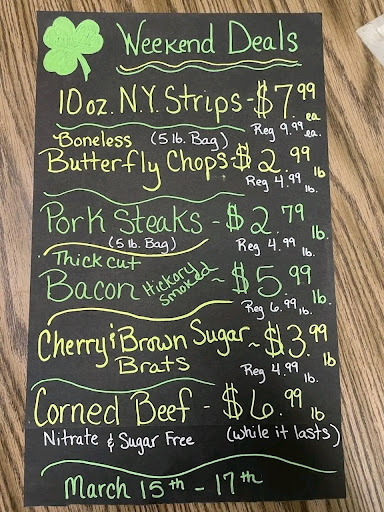 Weekend Deals
10 oz. N.Y. Strips - $7.99 ea
Reg 9.99 ea.
Boneless (5 lb. Bag)
Butterfly Chops - $2.99 lb
Reg 4.99 lb.
Pork Steaks - $2.79 lb.
(5 lb. Bag) Reg 4.99 lb.
Thick cut
Bacon Hickory Smoked ~ $5.99 lb.
Reg 6.99 lb.
Cherry & Brown Sugar ~ $3.99 lb
Brats Reg 4.99 lb.
Corned Beef - $6.99 lb
Nitrate & Sugar Free (while it lasts)
March 15th - 17th